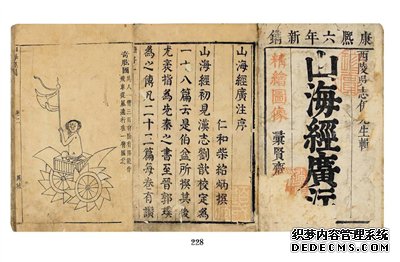 康熙六年新鐫
西陵吳志伊先生輯
山海經廣注
精繪圖像
彙賢齋
山海經廣注序
仁和柴紹炳撰
山海經初見漢志劉歆校定為
一十八篇云是伯益所撰其後
尤袤指為先秦之書至晉郭璞
為之傳凡二十三篇每卷有讚
奇肱國
228
织梦内容管理系统
DEDECMS.COM